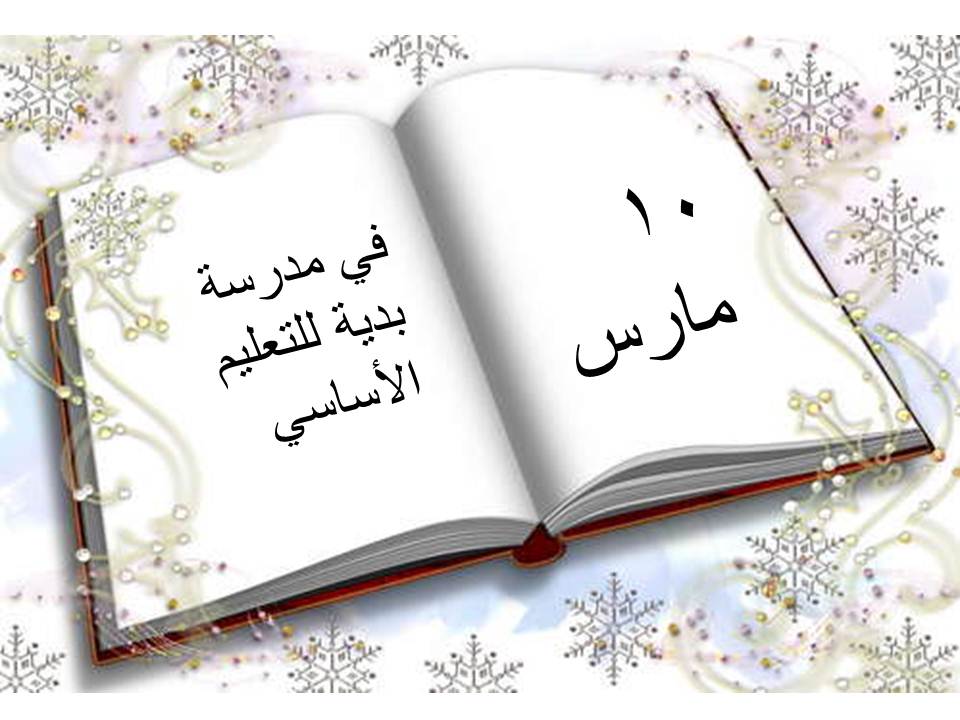 ١٠
مارس
في مدرسة
بدية للتعليم
الأساسي